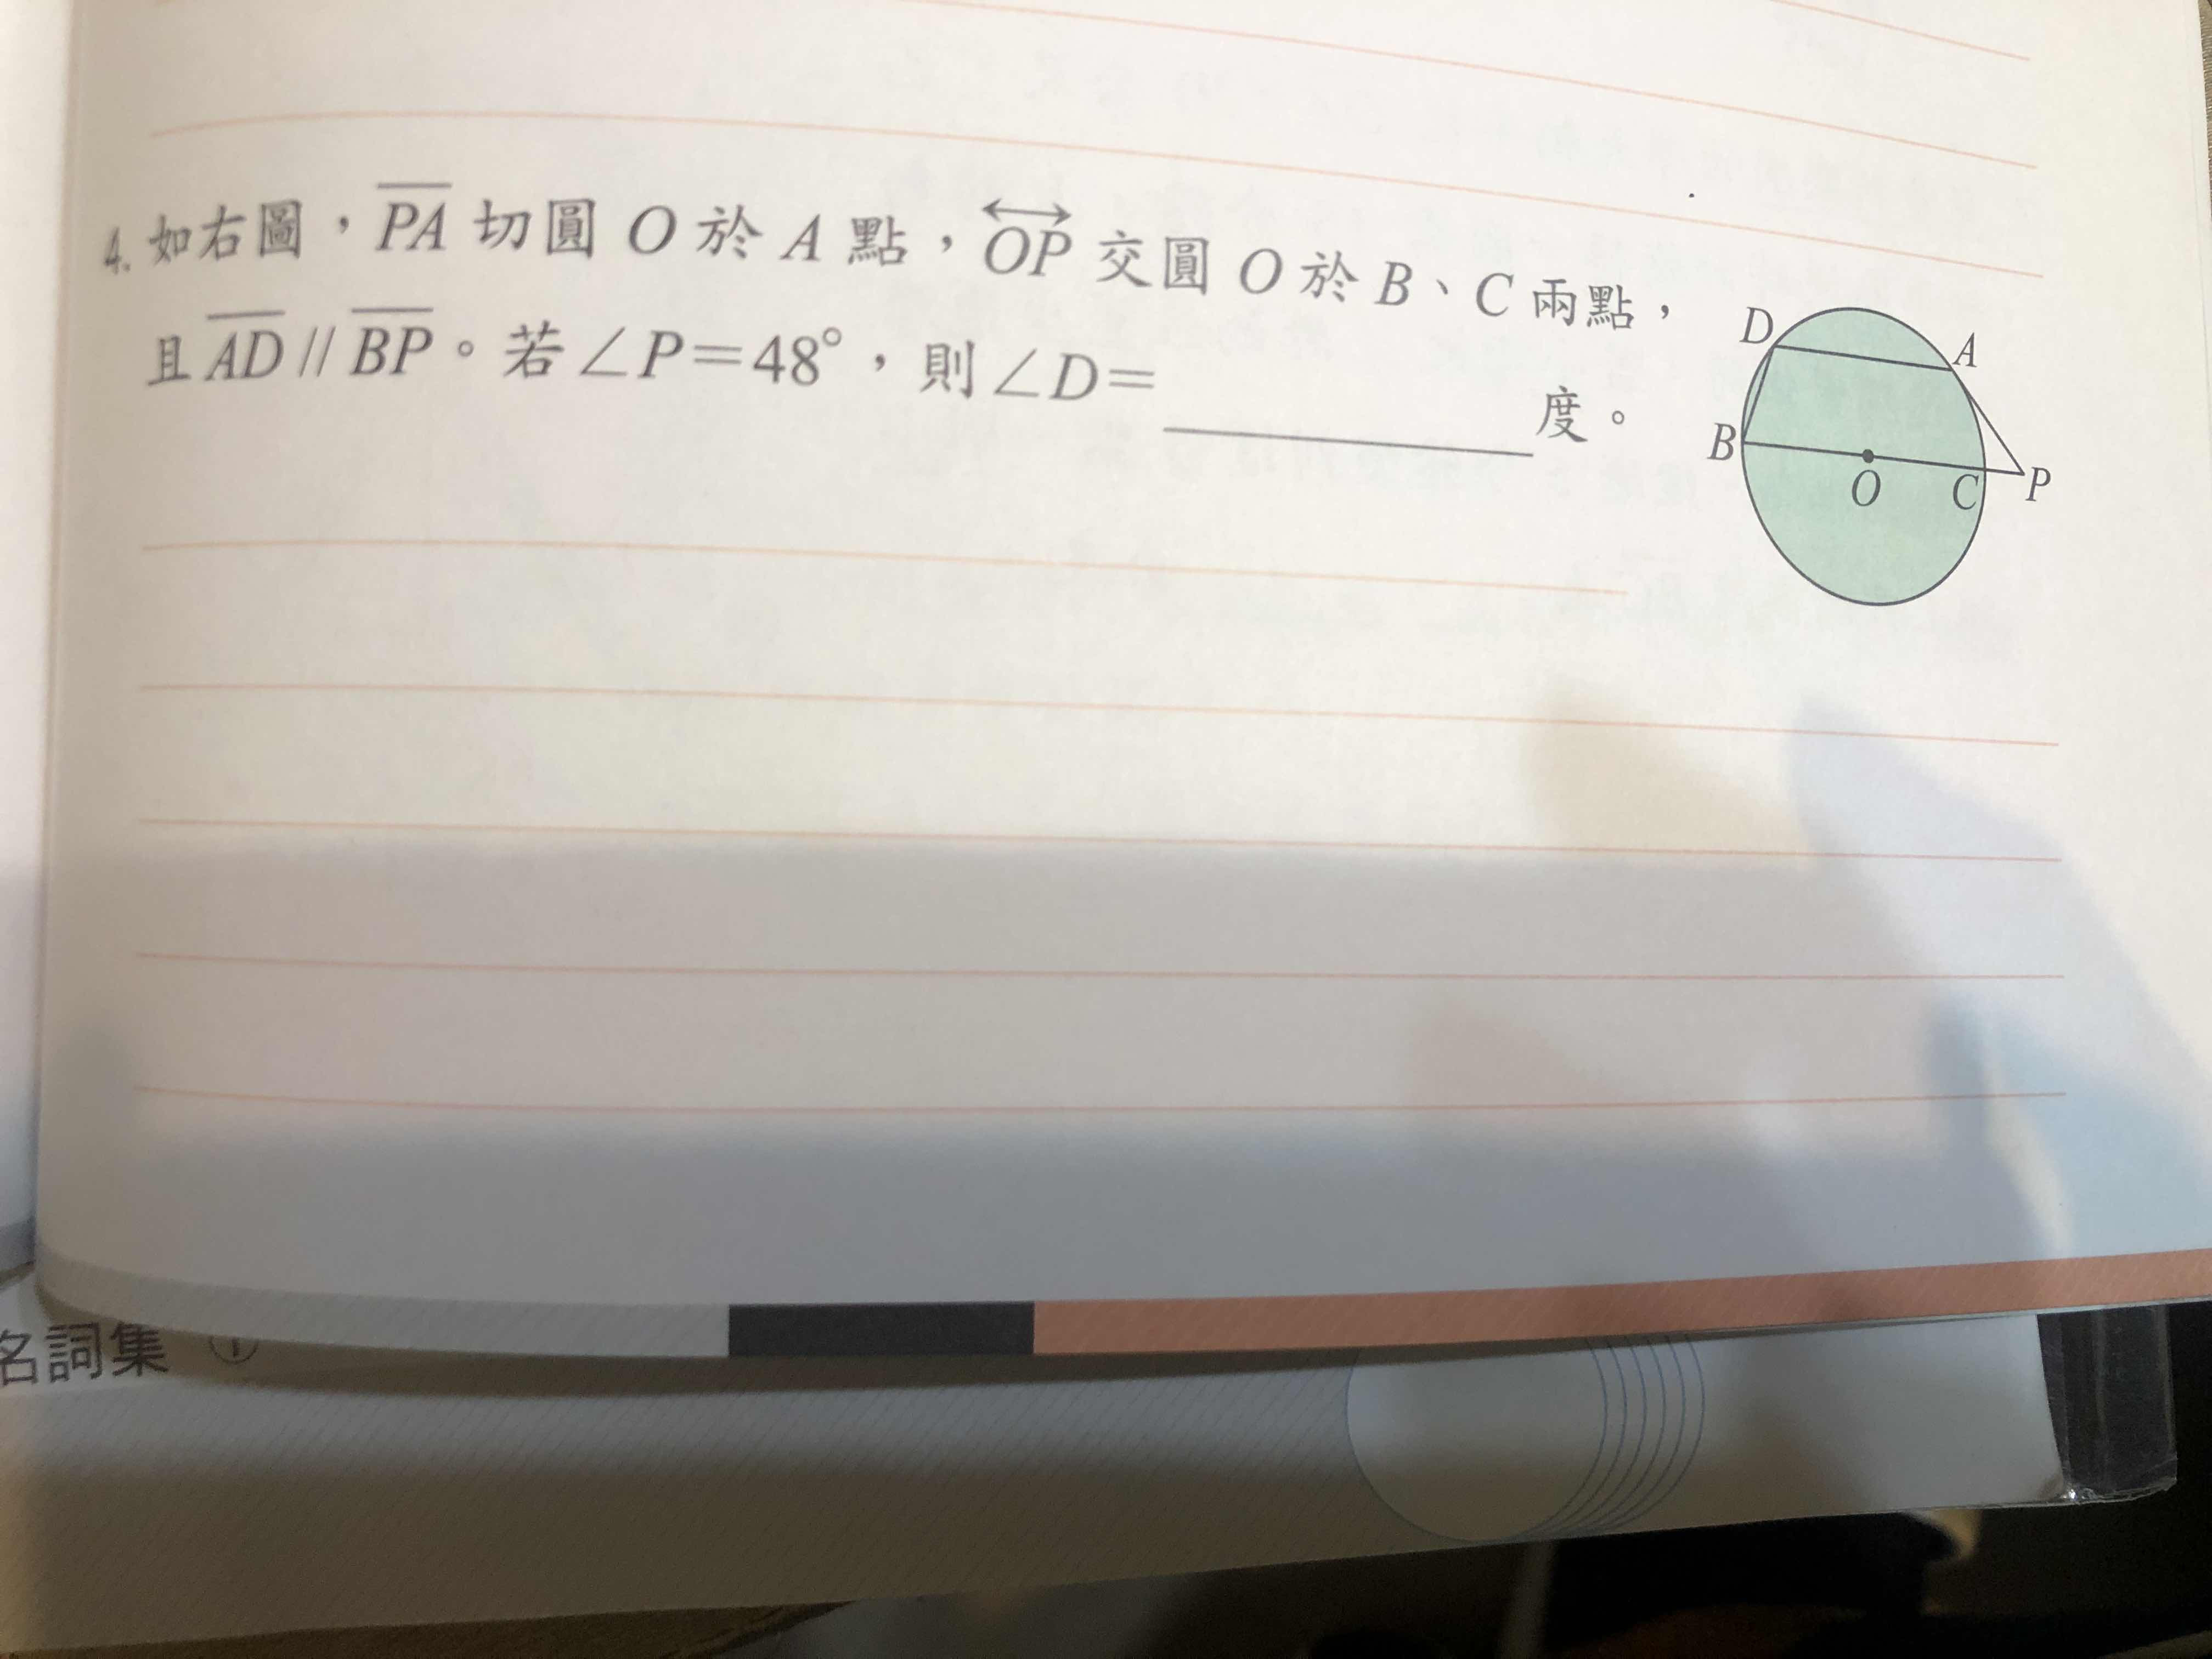 4. 如右圖，PA 切圓 O 於 A 點，OP 交圓 O 於 B、C 兩點，
且 AD // BP。若∠P=48°，則∠D=________度。
D
A
B
O
C
P
名詞集 ①